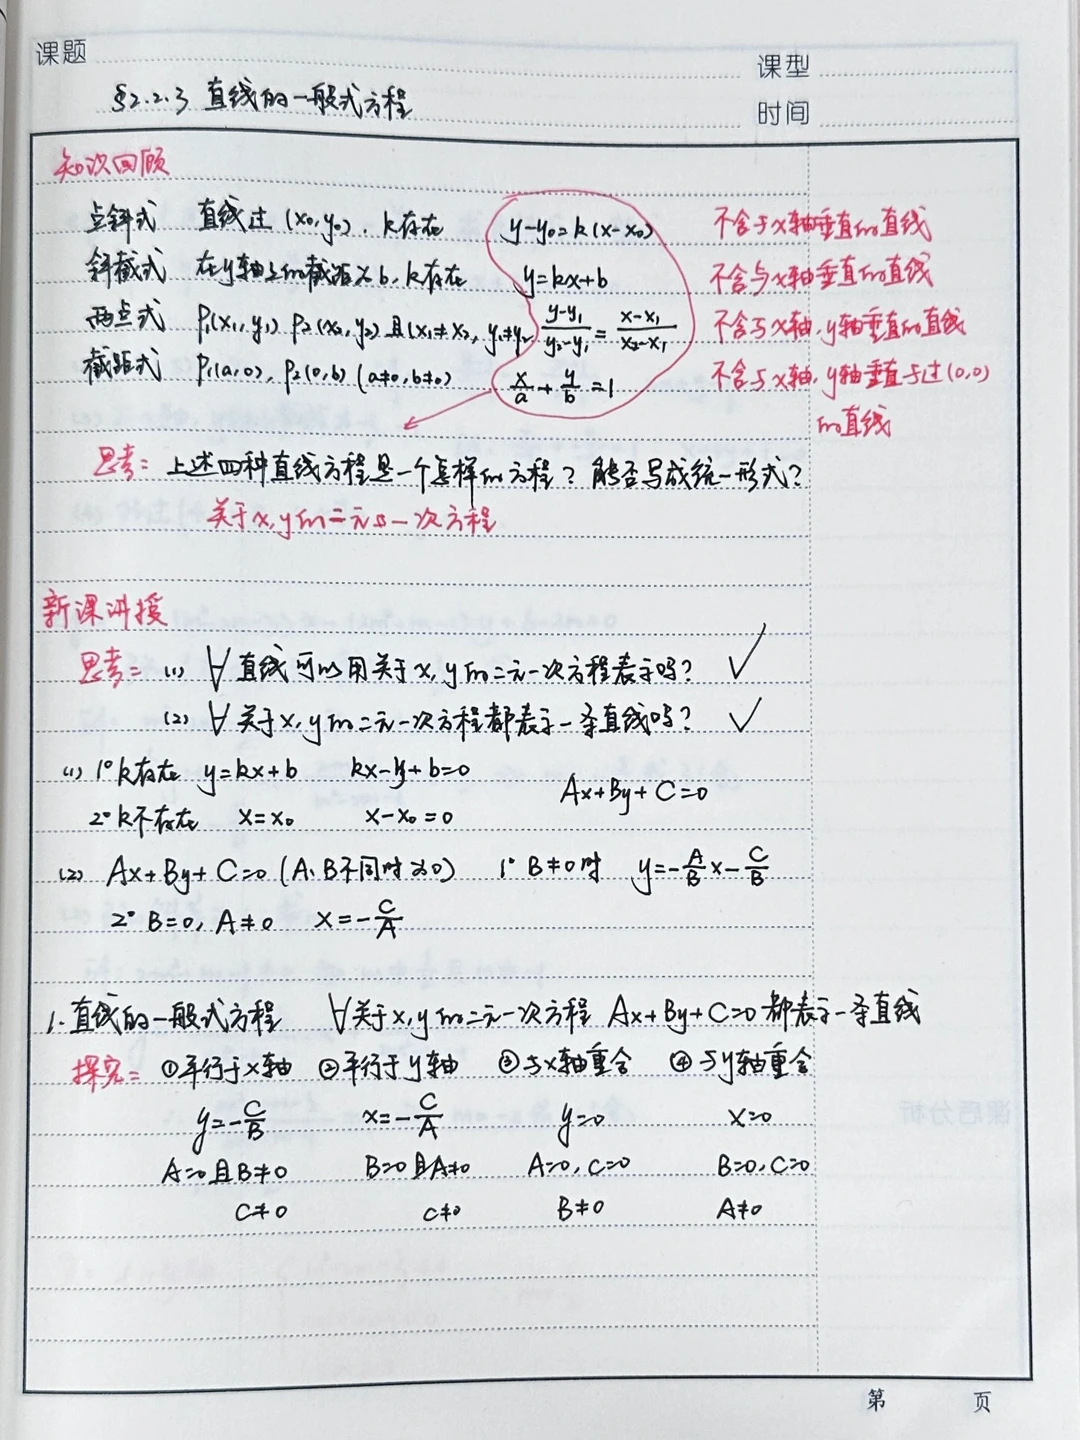 课题
课型
§2.2.3 直线的一般式方程
时间
知识回顾
点斜式 直线过 (x₀,y₀), k存在 y-y₀=k(x-x₀) 不含于x轴垂直的直线
斜截式 在y轴上的截距为b, k存在 y=kx+b 不含与x轴垂直的直线
两点式 P₁(x₁,y₁) P₂(x₂,y₂) 且(x₁≠x₂, y₁≠y₂ (y-y₁)/(y₂-y₁)=(x-x₁)/(x₂-x₁) 不含与x轴,y轴垂直的直线
截距式 P₁(a,0), P₂(0,b) (a≠0,b≠0) x/a+y/b=1 不含与x轴,y轴垂直于过(0,0)
的直线
思考: 上述四种直线方程是一个怎样的方程? 能否写成统一形式?
关于x,y的二元一次方程
新课讲授
思考: (1) ∀直线可以用关于x,y的二元一次方程表示吗? ✓
(2) ∀关于x,y的二元一次方程都表示一条直线吗? ✓
(1) 1° k存在 y=kx+b kx-y+b=0
Ax+By+C=0
2° k不存在 x=x₀ x-x₀=0
(2) Ax+By+C=0 (A、B不同时为0) 1° B≠0时 y=-A/B x-C/B
2° B=0, A≠0 x=-C/A
1.直线的一般式方程 ∀关于x,y的二元一次方程 Ax+By+C=0 都表示一条直线
探究: ①平行于x轴 ②平行于y轴 ③与x轴重合 ④与y轴重合
y=-C/B x=-C/A y=0 x=0
A=0且B≠0 B=0且A≠0 A=0, C=0 B=0, C=0
C≠0 C≠0 B≠0 A≠0
第 页